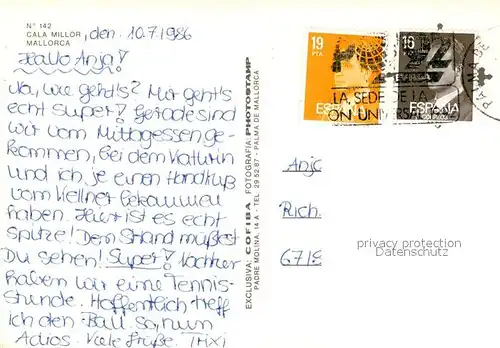 Nº 142
CALA MILLOR, den. 10.7.1986
MALLORCA
Hallo Anja!
Na, wie geht's? Mir geht's
echt super! Gerade sind
wir vom Mittagessen ge-
kommen, bei dem Kathrin
und ich je einen Handkuß
vom Kellner bekommen
haben. Hier ist es echt
spitze! Den Strand müßtest
Du sehen! Super! Nachher
haben wir eine Tennis-
stunde. Hoffentlich treff
ich den Ball. So, nun
Adios. Viele Grüße. Trixi
EXCLUSIVA: COFIBA FOTOGRAFIA: PHOTOSTAMP
PADRE MOLINA, 14 A - TEL. 29 52 87 - PALMA DE MALLORCA
19
PTA
ESPAÑA
16
ESPAÑA
LA, SEDE DE LA
ON UNIVERSA
PALMA
Anja
Rich.
671
privacy protection
Datenschutz